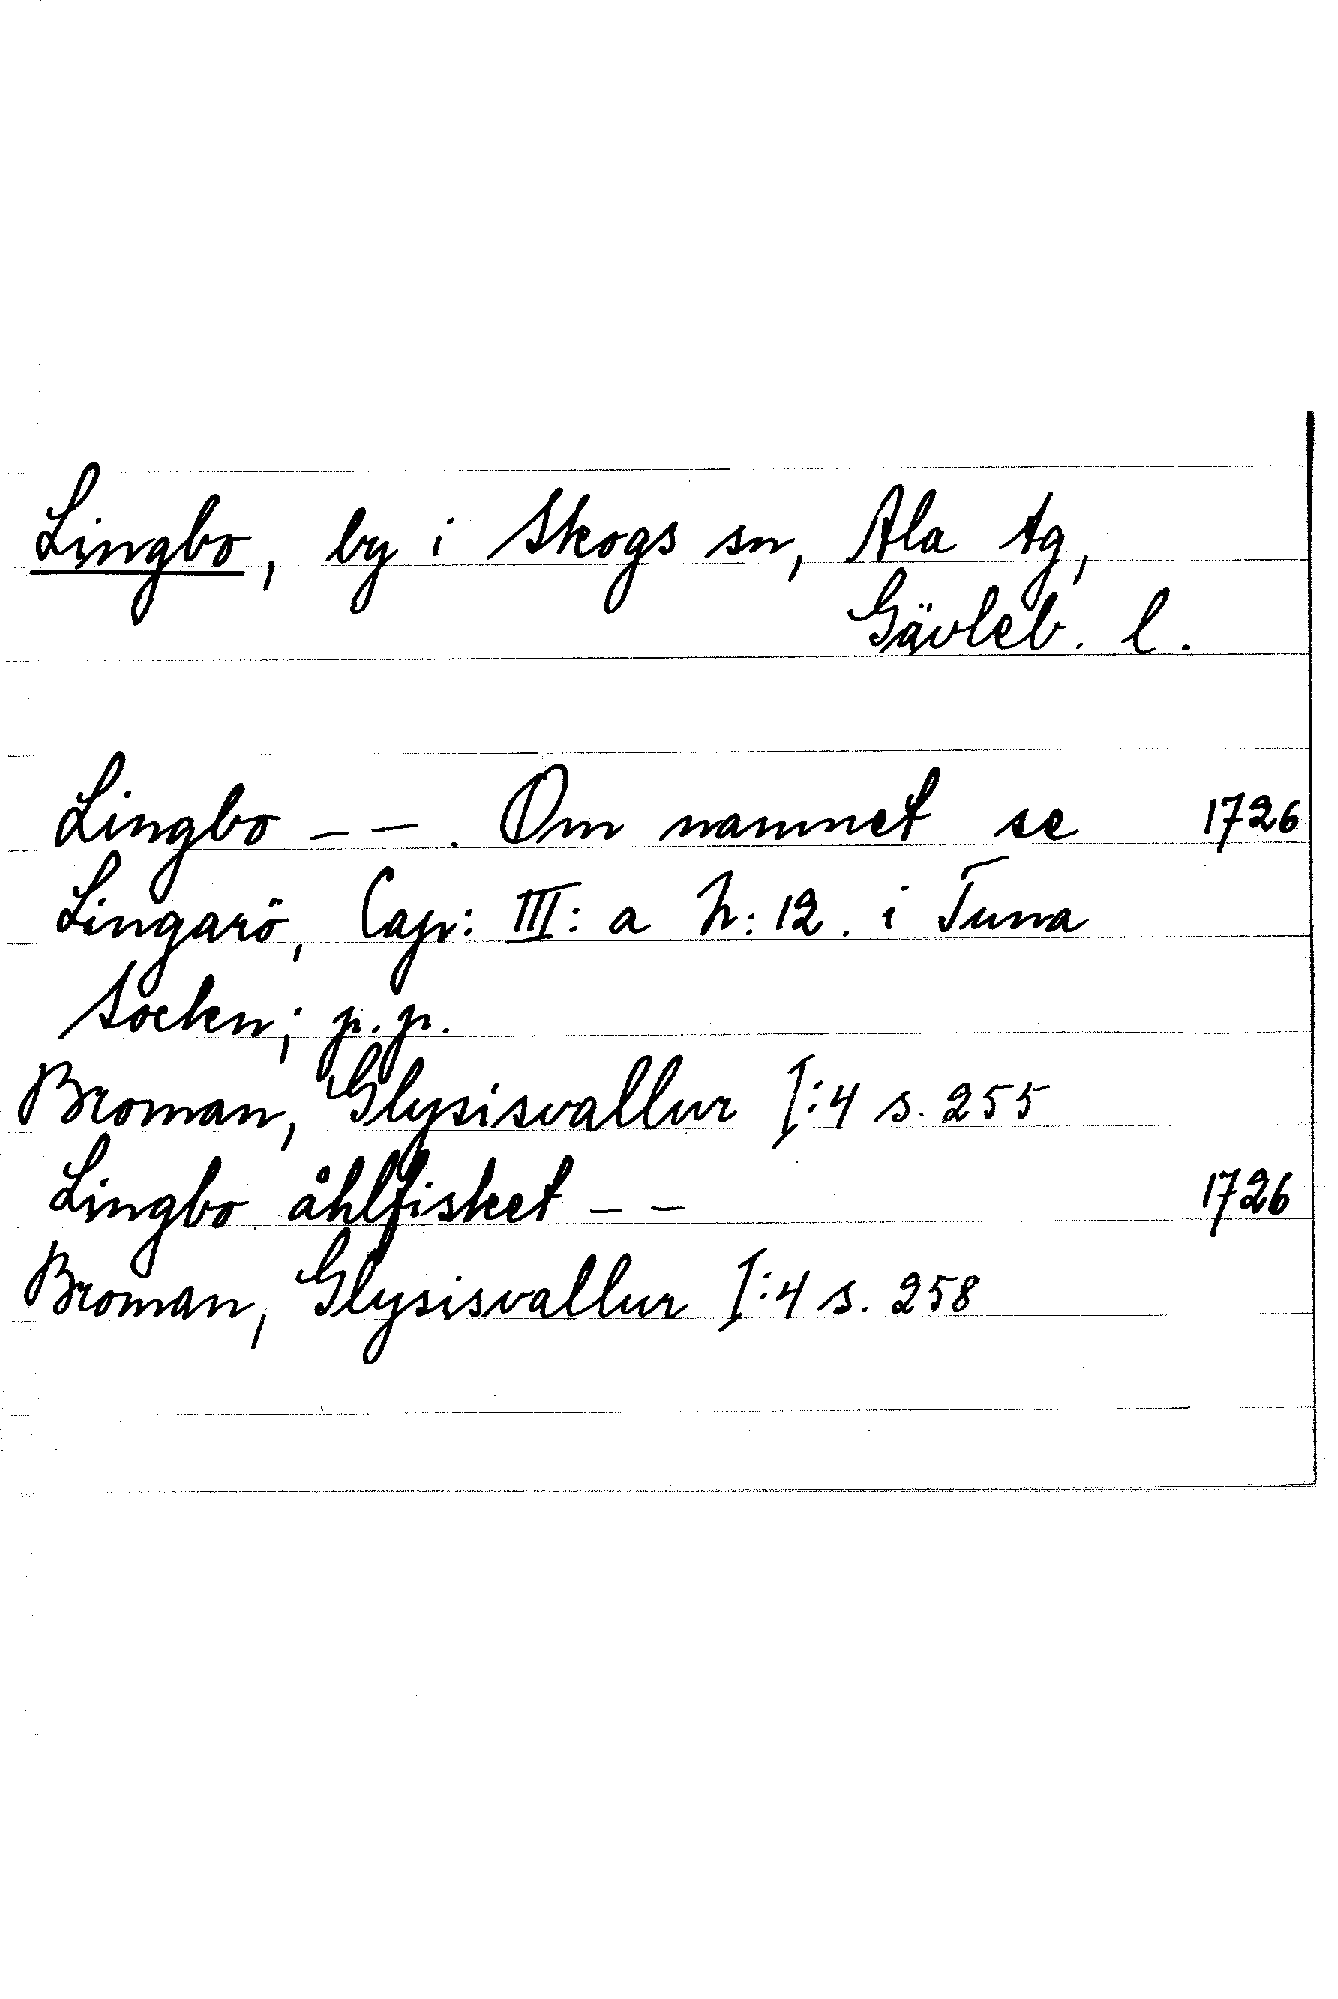 Lingbo, by i Skogs sn, Ala tg,
Gävleb. l.
Lingbo – – . Om namnet se 1726
Lingarö, Cap: III: a N: 12. i Tuna
Socken; p.p.
Broman, Glysisvallur I:4 s. 255
Lingbo åhlfisket – – 1726
Broman, Glysisvallur I:4 s. 258